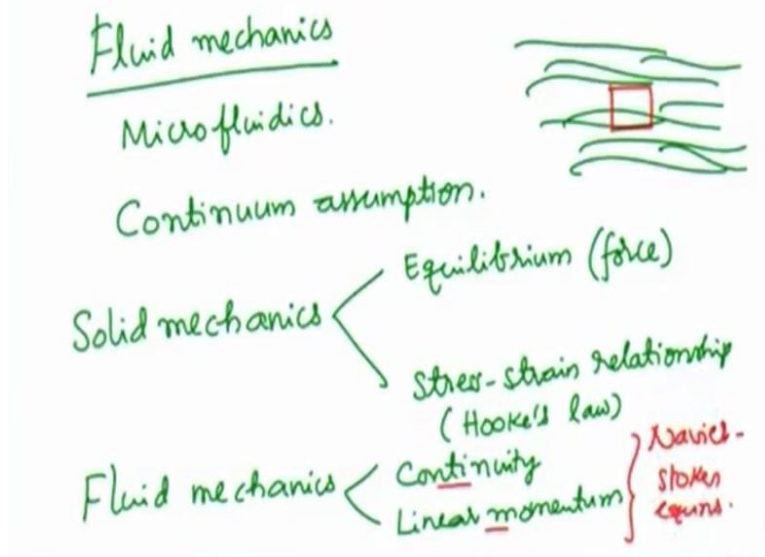 Fluid mechanics
Microfluidics.
Continuum assumption.
Equilibrium (force)
Solid mechanics
Stress-strain relationship
(Hooke's law)
Fluid mechanics
Continuity
Linear momentum
Navier-
stokes
equns.